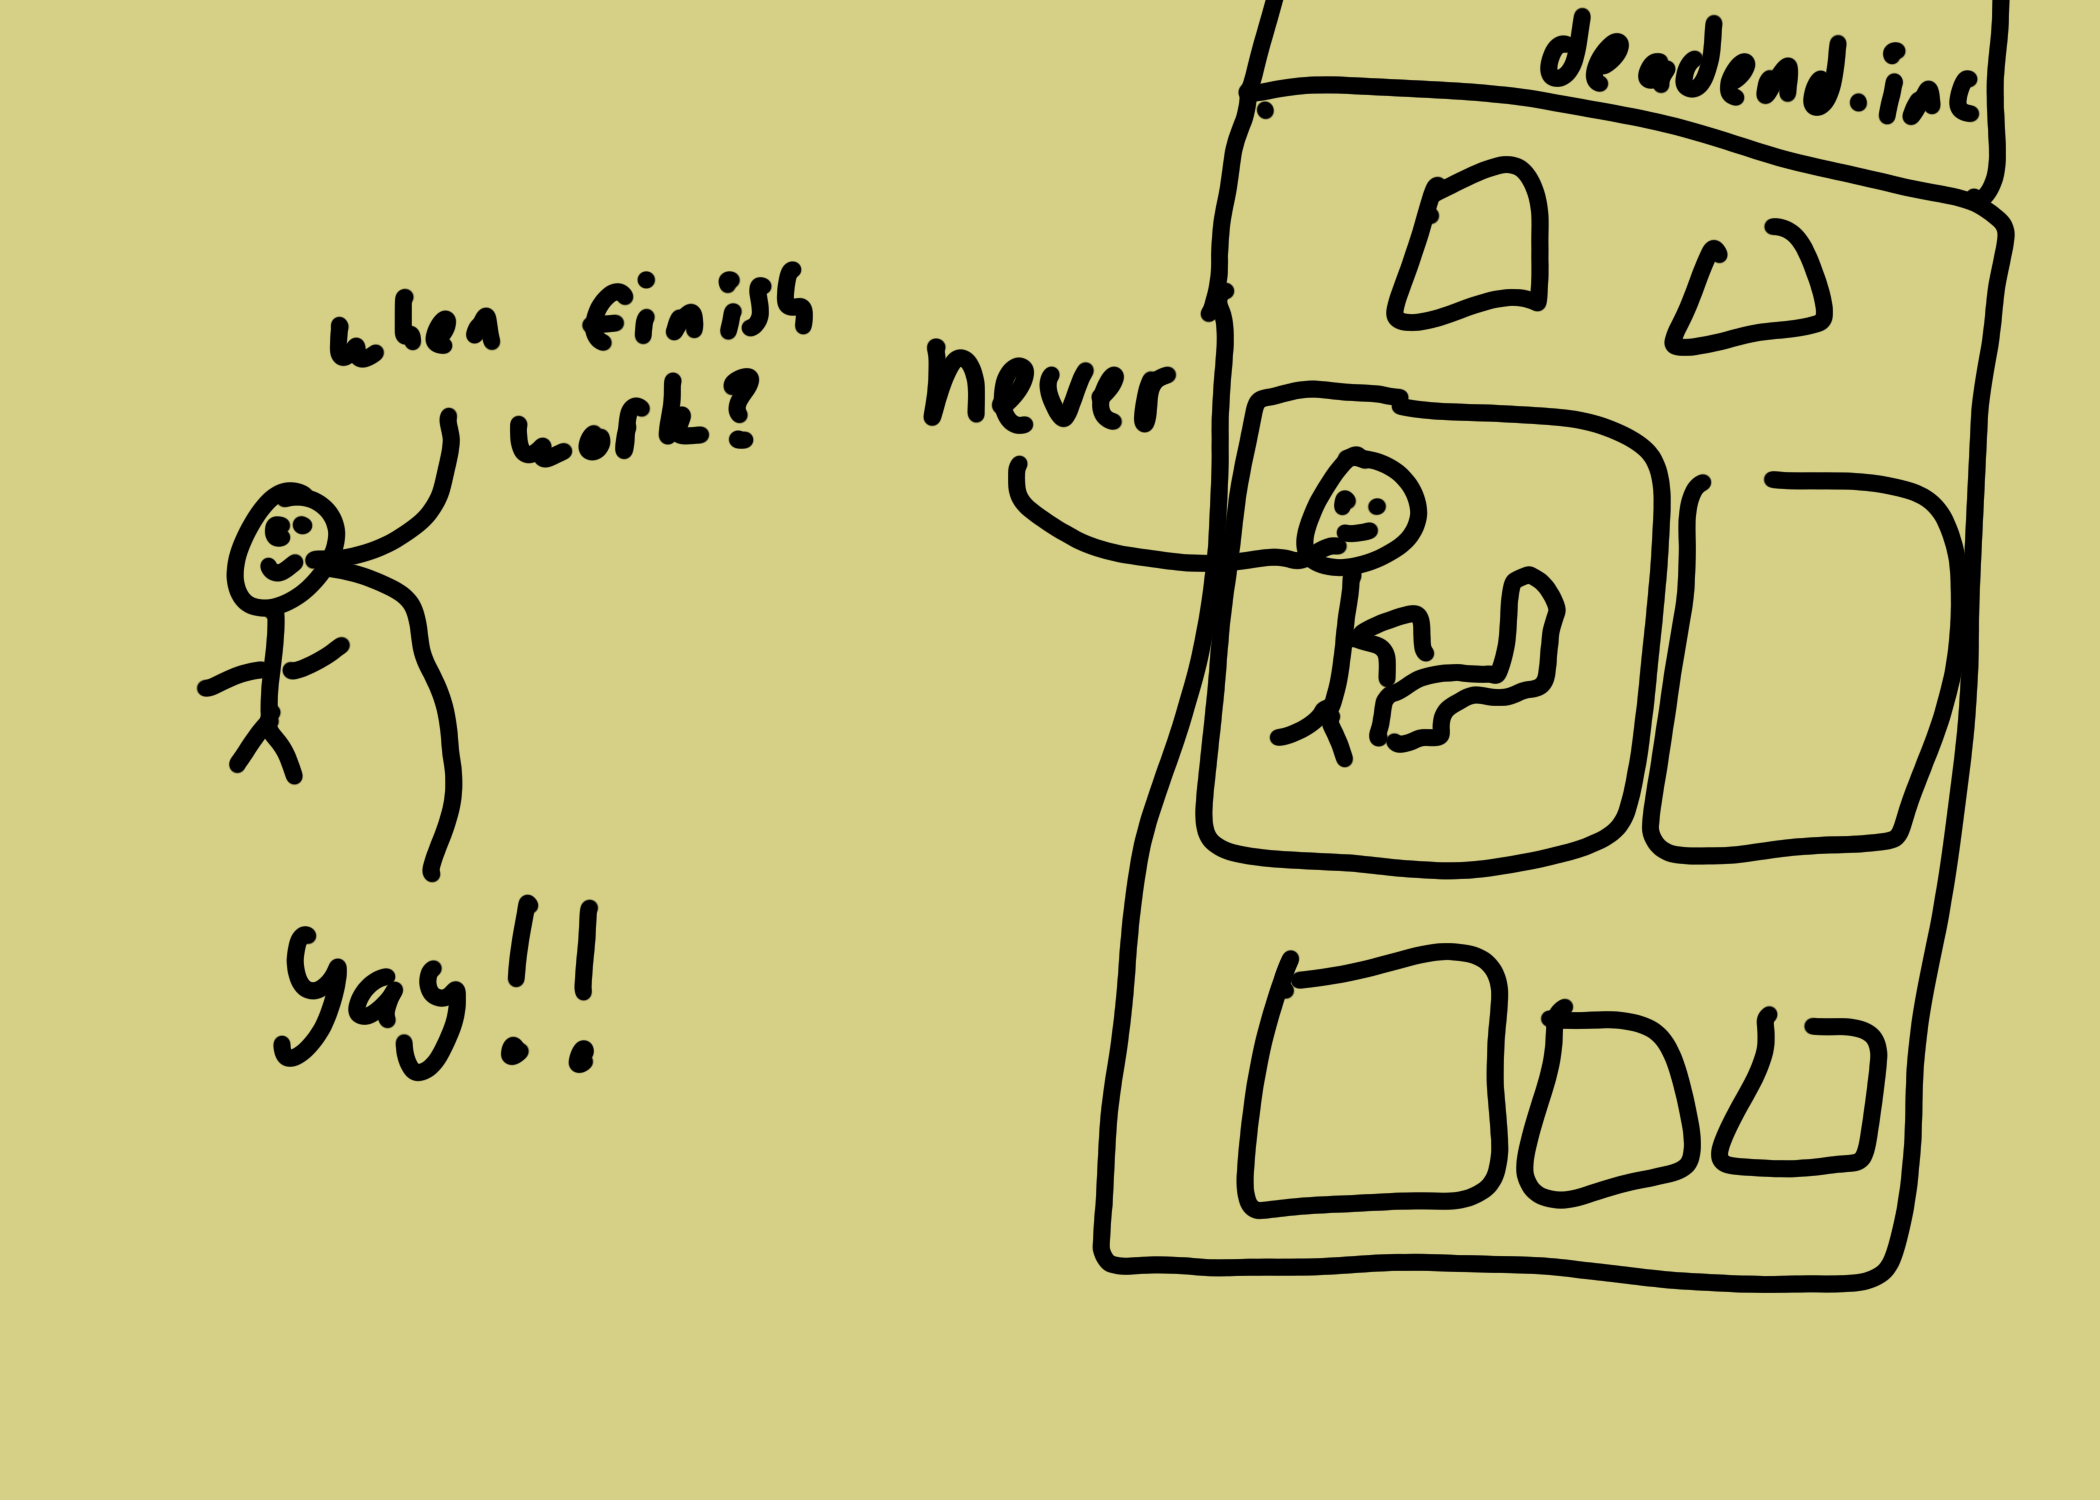 deadend.inc
when finish
work?
never
yay!!